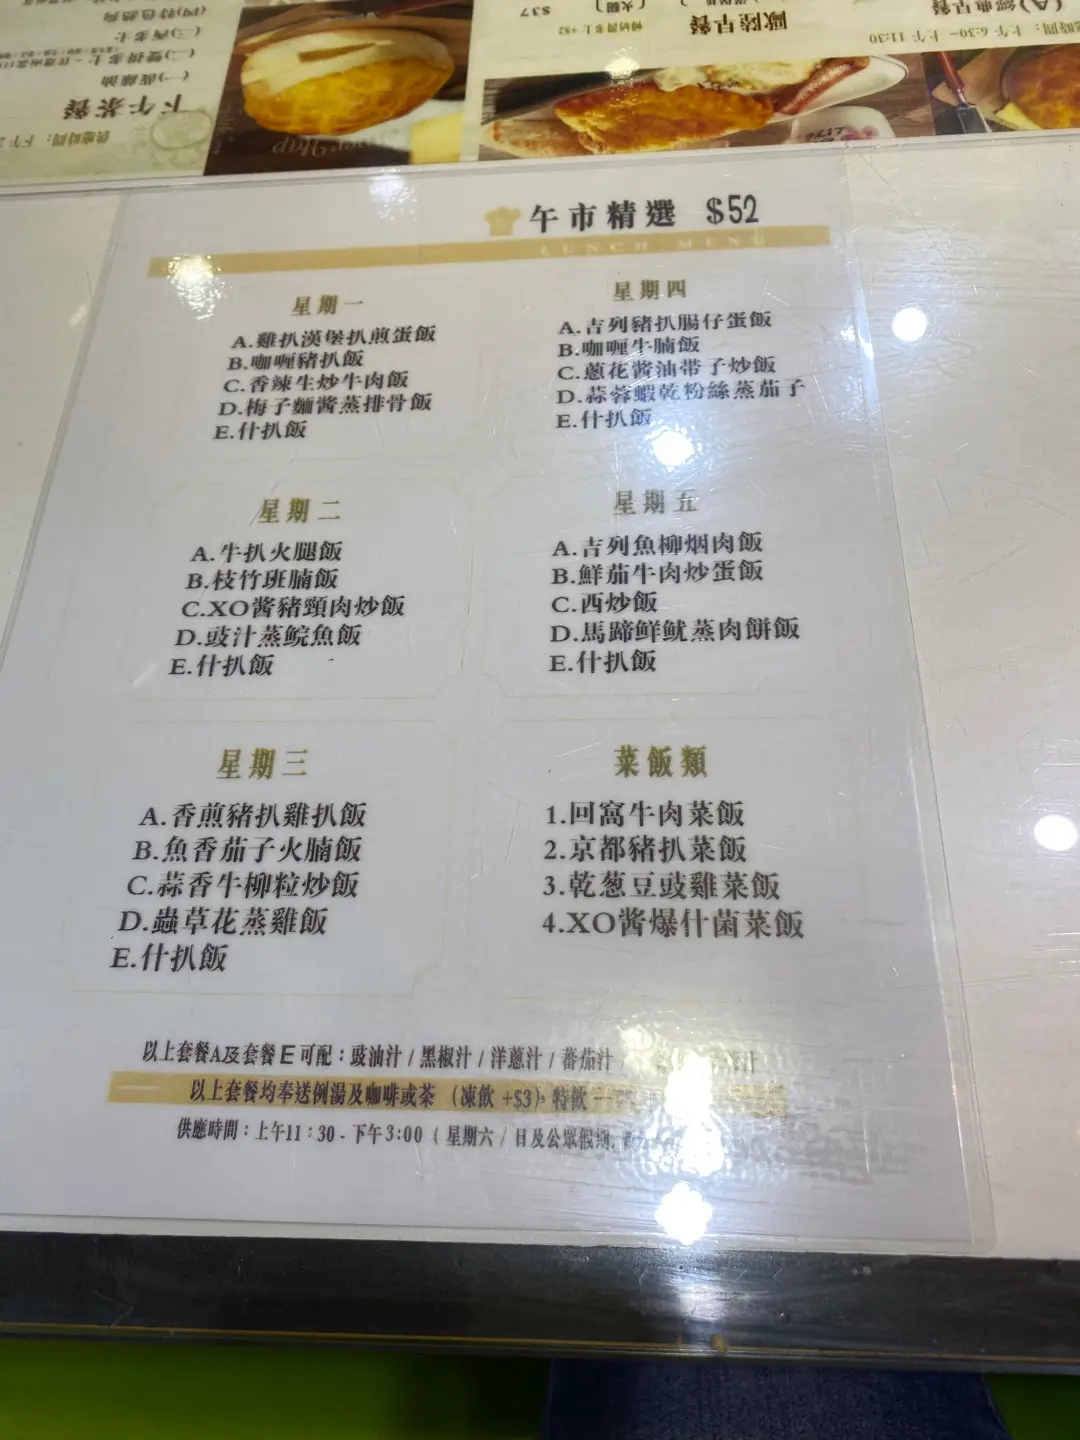 午市精選 $52
LUNCH MENU
星期一
A.雞扒漢堡扒煎蛋飯
B.咖喱豬扒飯
C.香辣生炒牛肉飯
D.梅子麵酱蒸排骨飯
E.什扒飯
星期二
A.牛扒火腿飯
B.枝竹班腩飯
C.XO酱豬頸肉炒飯
D.豉汁蒸鯇魚飯
E.什扒飯
星期三
A.香煎豬扒雞扒飯
B.魚香茄子火腩飯
C.蒜香牛柳粒炒飯
D.蟲草花蒸雞飯
E.什扒飯
星期四
A.吉列豬扒腸仔蛋飯
B.咖喱牛腩飯
C.蔥花酱油带子炒飯
D.蒜蓉蝦乾粉絲蒸茄子
E.什扒飯
星期五
A.吉列魚柳烟肉飯
B.鮮茄牛肉炒蛋飯
C.西炒飯
D.馬蹄鲜鱿蒸肉餅飯
E.什扒飯
菜飯類
1.回窩牛肉菜飯
2.京都豬扒菜飯
3.乾葱豆豉雞菜飯
4.XO酱爆什菌菜飯
以上套餐A及套餐E可配：豉油汁 / 黑椒汁 / 洋蔥汁 / 蕃茄汁
以上套餐均奉送例湯及咖啡或茶 （凍飲 +$3）特飲
供應時間：上午11：30 - 下午3:00 ( 星期六 / 日及公眾假期
下午茶餐
供應時間：下午2
(一)
(二)雙拼多士
(三)西多士
(四)特色熱狗
歐陸早餐
$37
轉奶醬多士+$2
(A)經典早餐
時間：上午 6:30- 上午 11:30